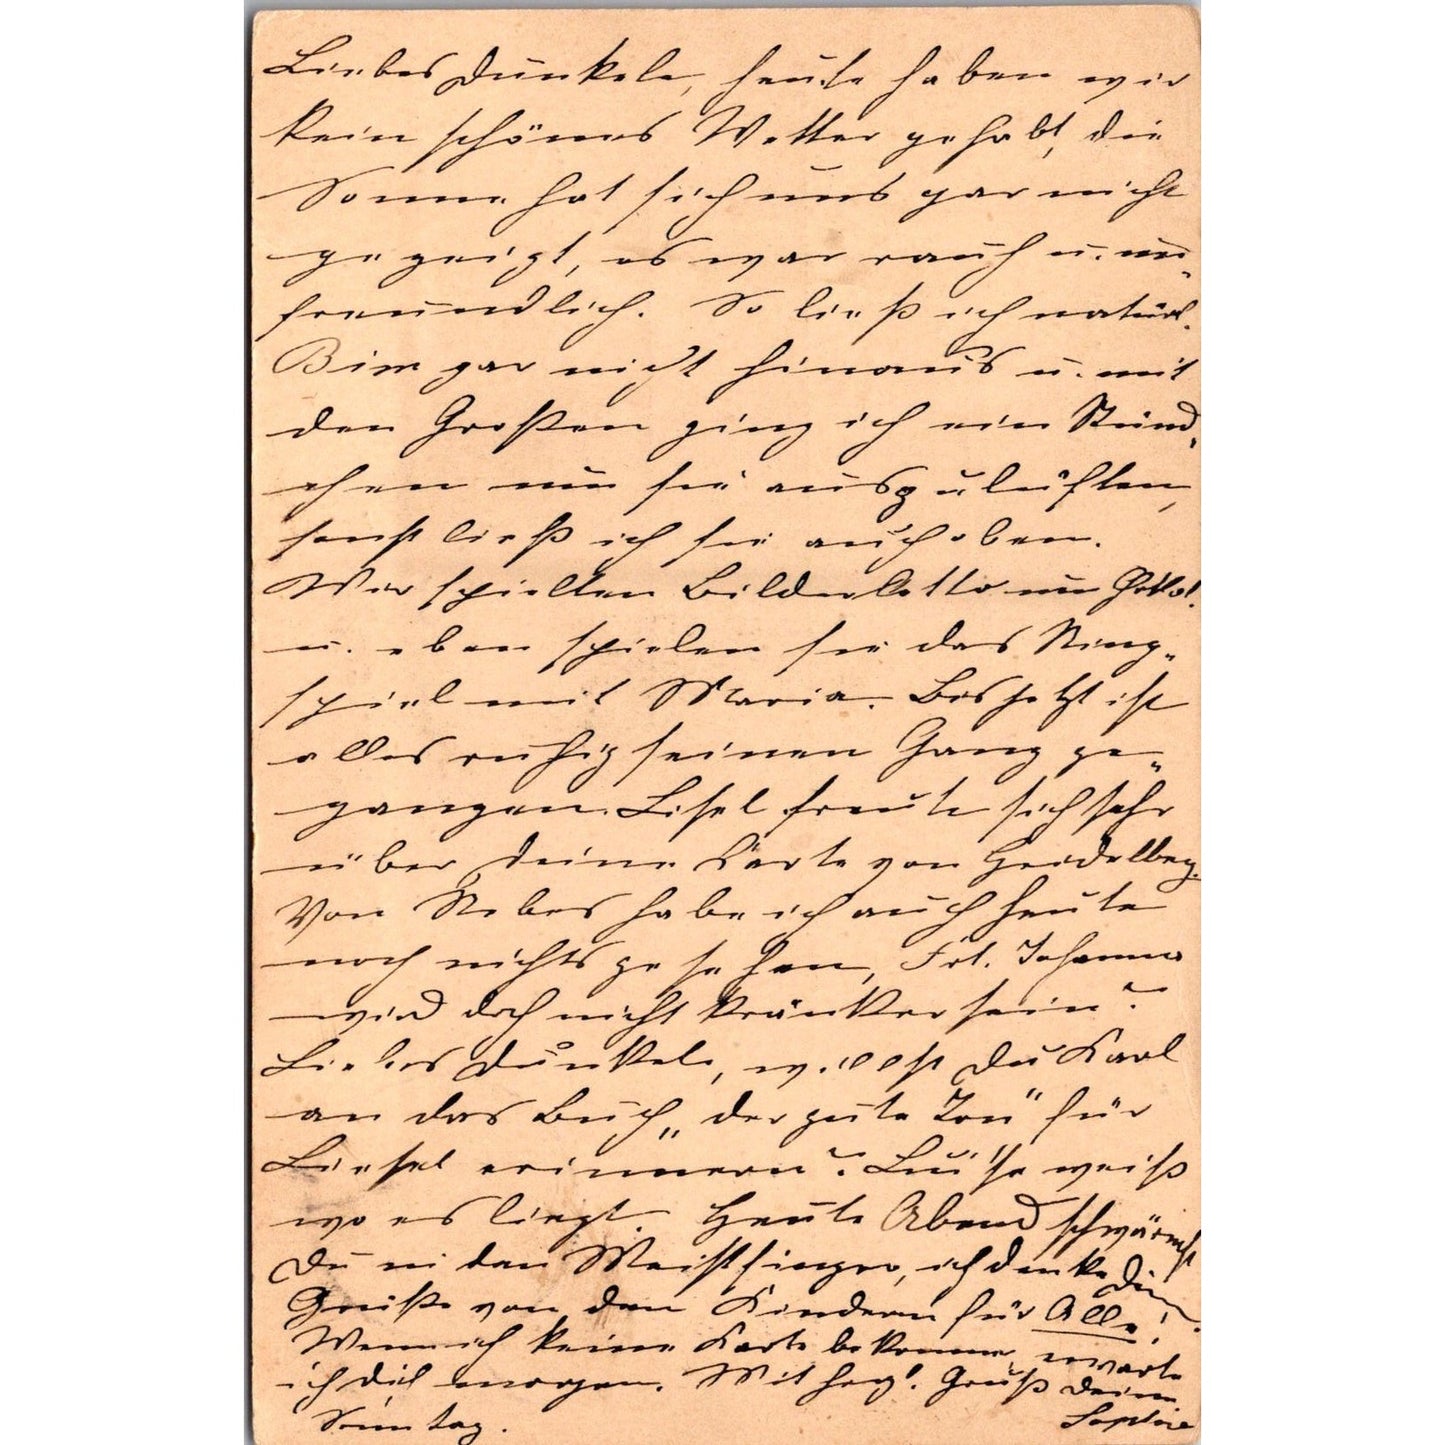 Liebes Dunkele, heute haben wir
kein schönes Wetter gehabt, die
Sonne hat sich uns gar nicht
gezeigt, es war rauh u. un-
freundlich. So ließ ich natürl.
Bim gar nicht hinaus u. mit
den Großen ging ich ein Stünd-
chen um sie auszulüften,
sonst ließ ich sie auch oben.
Wir spielten Bilderlotto um
u. eben spielen sie das Ring-
spiel mit Maria. Bis jetzt ist
alles ruhig seinen Gang ge-
gangen. Lisel freute sich sehr
über Deine Karte von Heidelberg.
Von habe ich auch heute
noch nichts gesehen, Frl. Johanna
wird doch nicht kränker sein?
Liebes Dunkele, willst Du Karl
an das Buch „der gute Ton" für
Liesel erinnern? Luise weiß
wo es liegt. Heute Abend schwärmst
Du in den Meistsinger, ich denke Dein.
Grüße von den Kindern für Alle!
Wenn ich keine Karte bekomme, erwarte
ich dich morgen. Mit herzl. Gruß Deine
Sonntag. Sophie